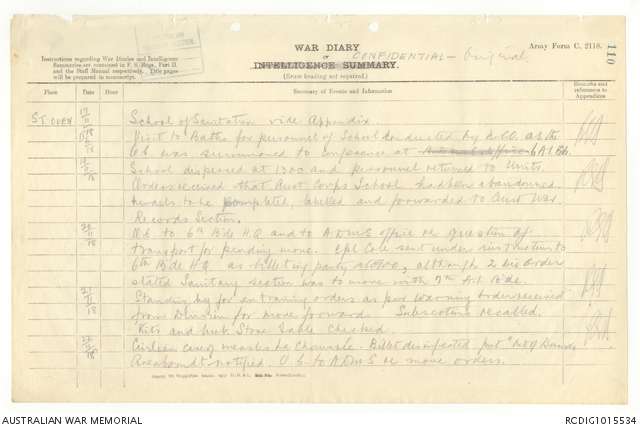 Army Form C. 2118.
WAR DIARY
or
INTELLIGENCE SUMMARY.
CONFIDENTIAL - Original
110
Instructions regarding War Diaries and Intelligence
Summaries are contained in F. S. Regs., Part II.
and the Staff Manual respectively. Title pages
will be prepared in manuscript.
(Erase heading not required.)
Place
Date
Hour
Summary of Events and Information
Remarks and references to Appendices
ST OUEN
School of Sanitation vide Appendix.
Visit to Baths for personnel of School conducted by as the
C.O. was summoned to conference at 6 A I Bde
School dispersed at 1300 and personnel returned to Units
Orders received that Aust Corps School had been abandoned
to be completed, labelled and forwarded to Aust War
Records Section.
20/11/18
O.C. to 6th Bde H.Q. and to A.D.M.S office re question of
transport for pending move. Cpl Cole sent under instructions to
6th Bde H.Q. as billeting party, although Div Order
stated Sanitary section was to move with 7th A.I. Bde.
21/11/18
Standing by for entraining orders as per warning order received
from Division for move forward. Subsections recalled.
Kits and Store Table Checked.
Civilian case, measles. Billet disinfected, put
notified. O.C. to A.D.M.S re move orders.
AUSTRALIAN WAR MEMORIAL
RCDIG1015534